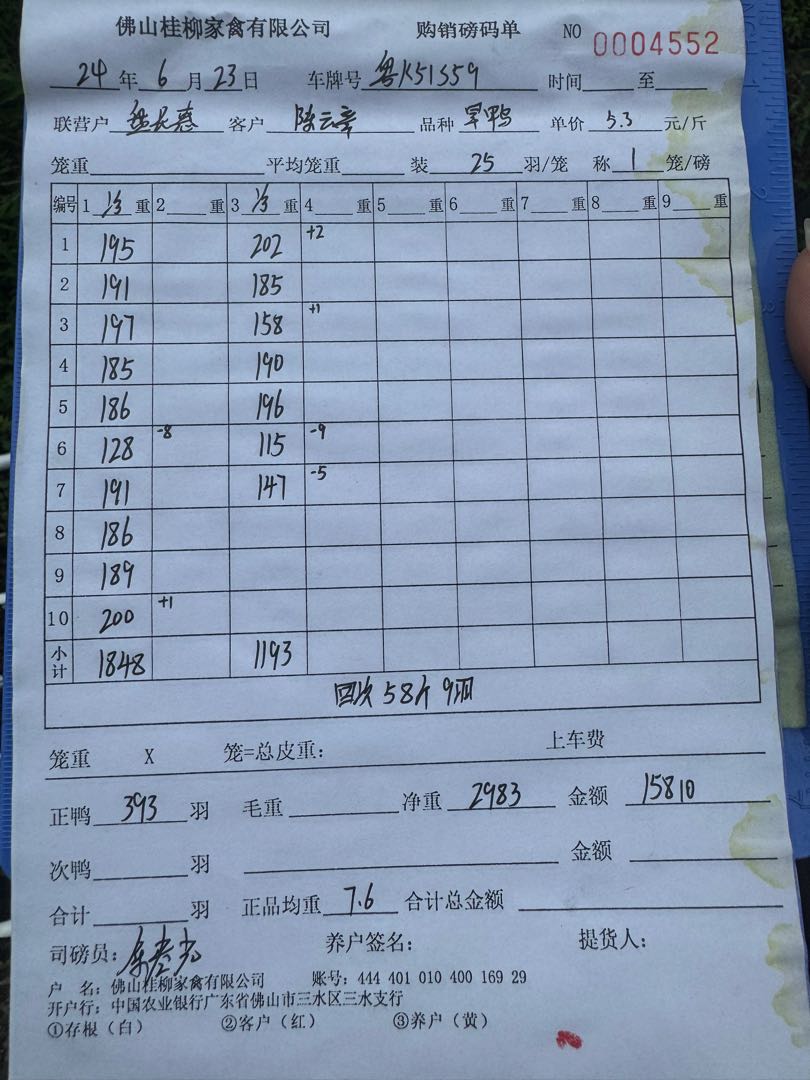 佛山桂柳家禽有限公司 购销磅码单 NO 0004552
24年6月23日 车牌号 粤K51S59 时间 至
联营户 客户 陈云章 品种 旱鸭 单价 5.3 元/斤
笼重 平均笼重 装 25 羽/笼 称 1 笼/磅
编号 1 重 2 重 3 重 4 重 5 重 6 重 7 重 8 重 9 重
1 195 202 +2
2 191 185
3 197 158 +1
4 185 190
5 186 196
6 128 -8 115 -9
7 191 147 -5
8 186
9 189
10 200 +1
小计 1848 1193
四次58斤9羽
笼重 X 笼=总皮重: 上车费
正鸭 393 羽 毛重 净重 2983 金额 15810
次鸭 羽 金额
合计 羽 正品均重 7.6 合计总金额
司磅员: 养户签名: 提货人:
户 名: 佛山桂柳家禽有限公司 账号: 444 401 010 400 169 29
开户行: 中国农业银行广东省佛山市三水区三水支行
①存根（白） ②客户（红） ③养户（黄）